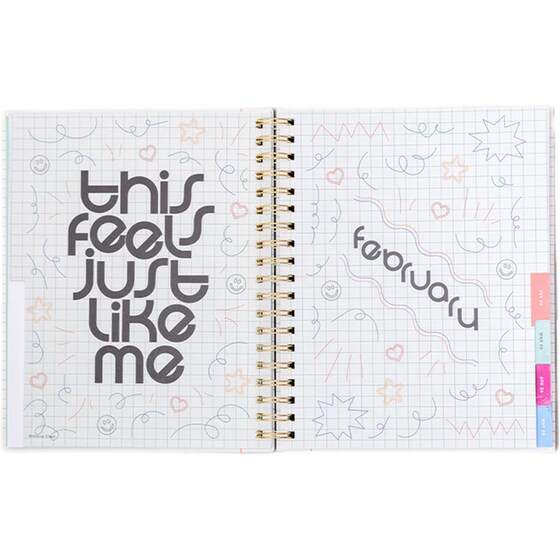 this
feels
just
like
me
february